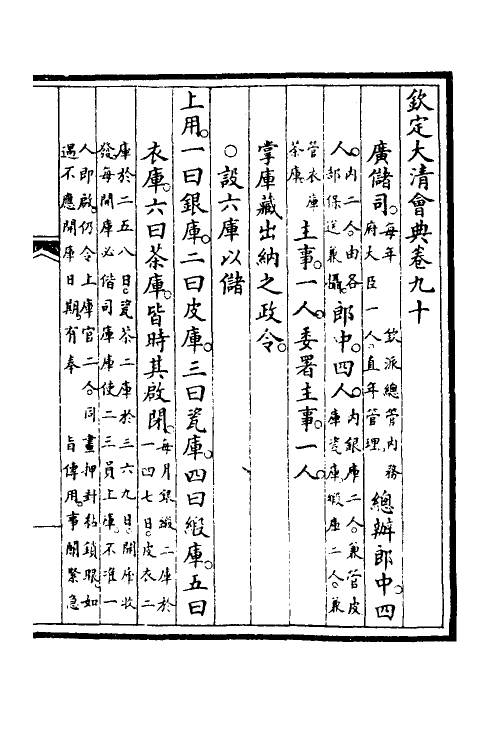 欽定大清會典卷九十
廣儲司。每年 欽派總管內務府大臣一人直年管理 總辦郎中。四
人。內二人由各部保送兼攝。郎中。四人。內銀庫二人。兼管皮庫瓷庫。緞庫二人。兼
管衣庫茶庫 主事。一人。委署主事。一人
掌庫藏出納之政令。
○設六庫以儲
上用。一曰銀庫。二曰皮庫。三曰瓷庫。四曰緞庫。五曰
衣庫。六曰茶庫。皆時其啟閉。每月銀緞二庫於一四七日。皮衣二
庫於二五八日。瓷茶二庫於三六九日。開庫收發每開庫必偕司庫庫使二三員上庫。不准一
人即啟。仍令上庫官二人。同畫押封粘鎖眼。如遇不應開庫日期。有奉 旨傳用。事關緊急